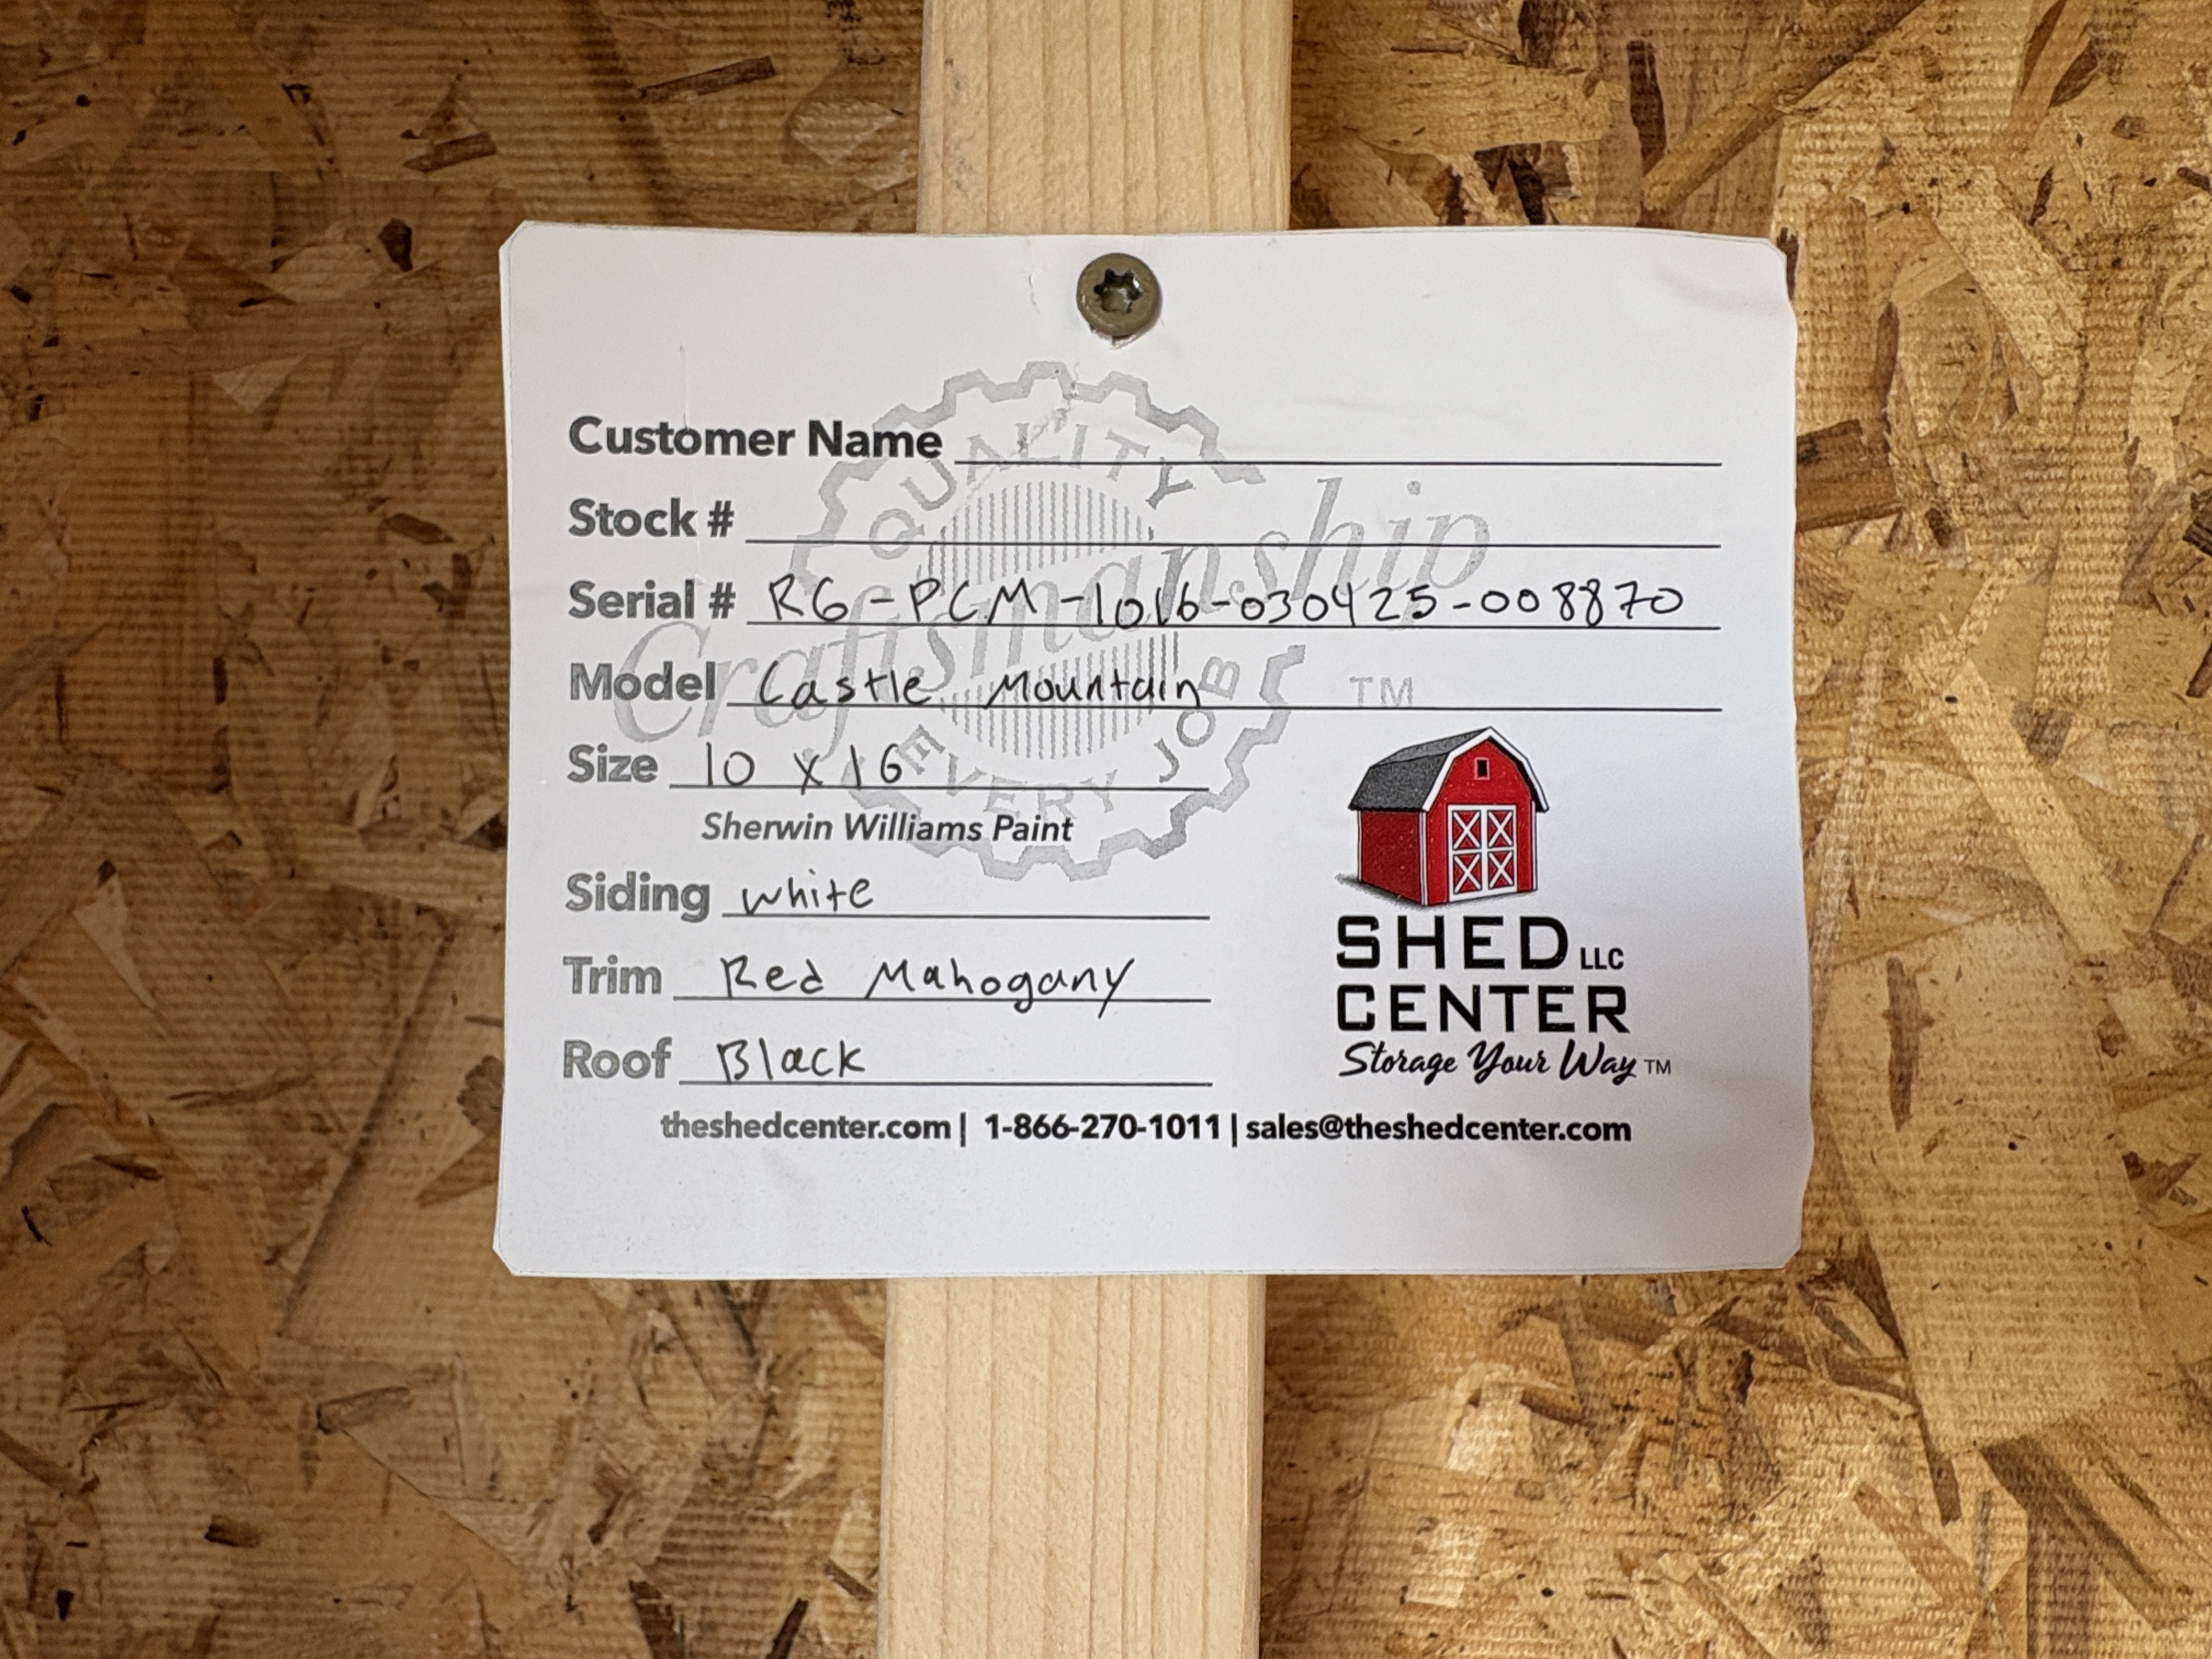 Customer Name
Stock #
Serial # RG-PCM-1016-030425-008870
Model Castle Mountain
Size 10 x 16
Sherwin Williams Paint
Siding white
Trim Red Mahogany
Roof Black
QUALITY
Craftsmanship TM
EVERY JOB
SHED LLC
CENTER
Storage Your Way TM
theshedcenter.com | 1-866-270-1011 | sales@theshedcenter.com